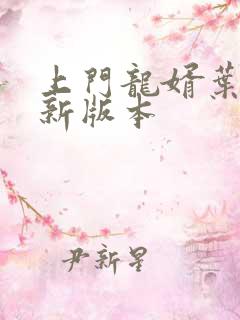 上門龍婿葉
新版本
尹新星